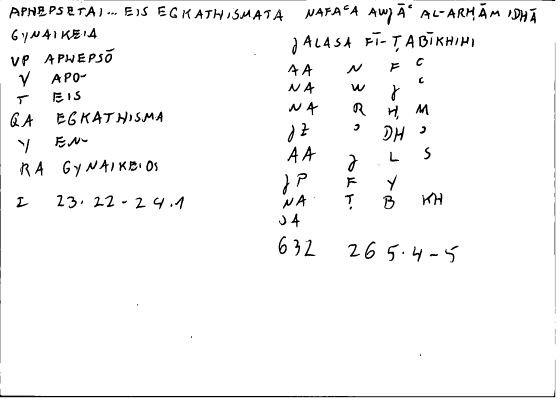 APHEPSETAI... EIS EGKATHISMATA
GYNAIKEIA
VP APHEPSŌ
V APO-
T EIS
QA EGKATHISMA
Y EN-
RA GYNAIKEIOS
I 23.22-24.1
NAFAʿA AWJĀʿ AL-ARḤĀM IDHĀ
JALASA FĪ-ṬABĪKHIHI
AA N F ʿ
NA W J ʿ
NA R Ḥ M
JZ ʾ DH ʾ
AA J L S
JP F Y
NA Ṭ B KH
632 265.4-5